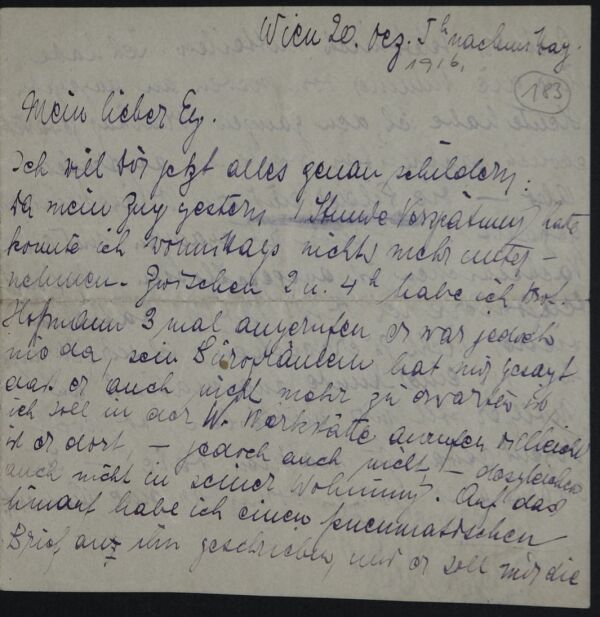 Wien 20. Dez. 5h nachmittag.
1916.
183
Mein lieber Eg.
Ich will Dir jetzt alles genau schildern:
Da mein Zug gestern 1 Stunde Verspätung hatte
konnte ich vormittags nichts mehr unter-
nehmen. Zwischen 2 u. 4h habe ich Prof.
Hofmann 3 mal angerufen, er war jedoch
nie da, sein Bürofräulein hat mir gesagt
das er auch nicht mehr zu erwarten ist
ich soll in der W. Werkstätte anrufen vielleicht
ist er dort, – jedoch auch nicht, – desgleichen
auch nicht in seiner Wohnung. Auf das
hinauf habe ich einen pneumatischen
Brief an ihn geschrieben, und er soll mir die